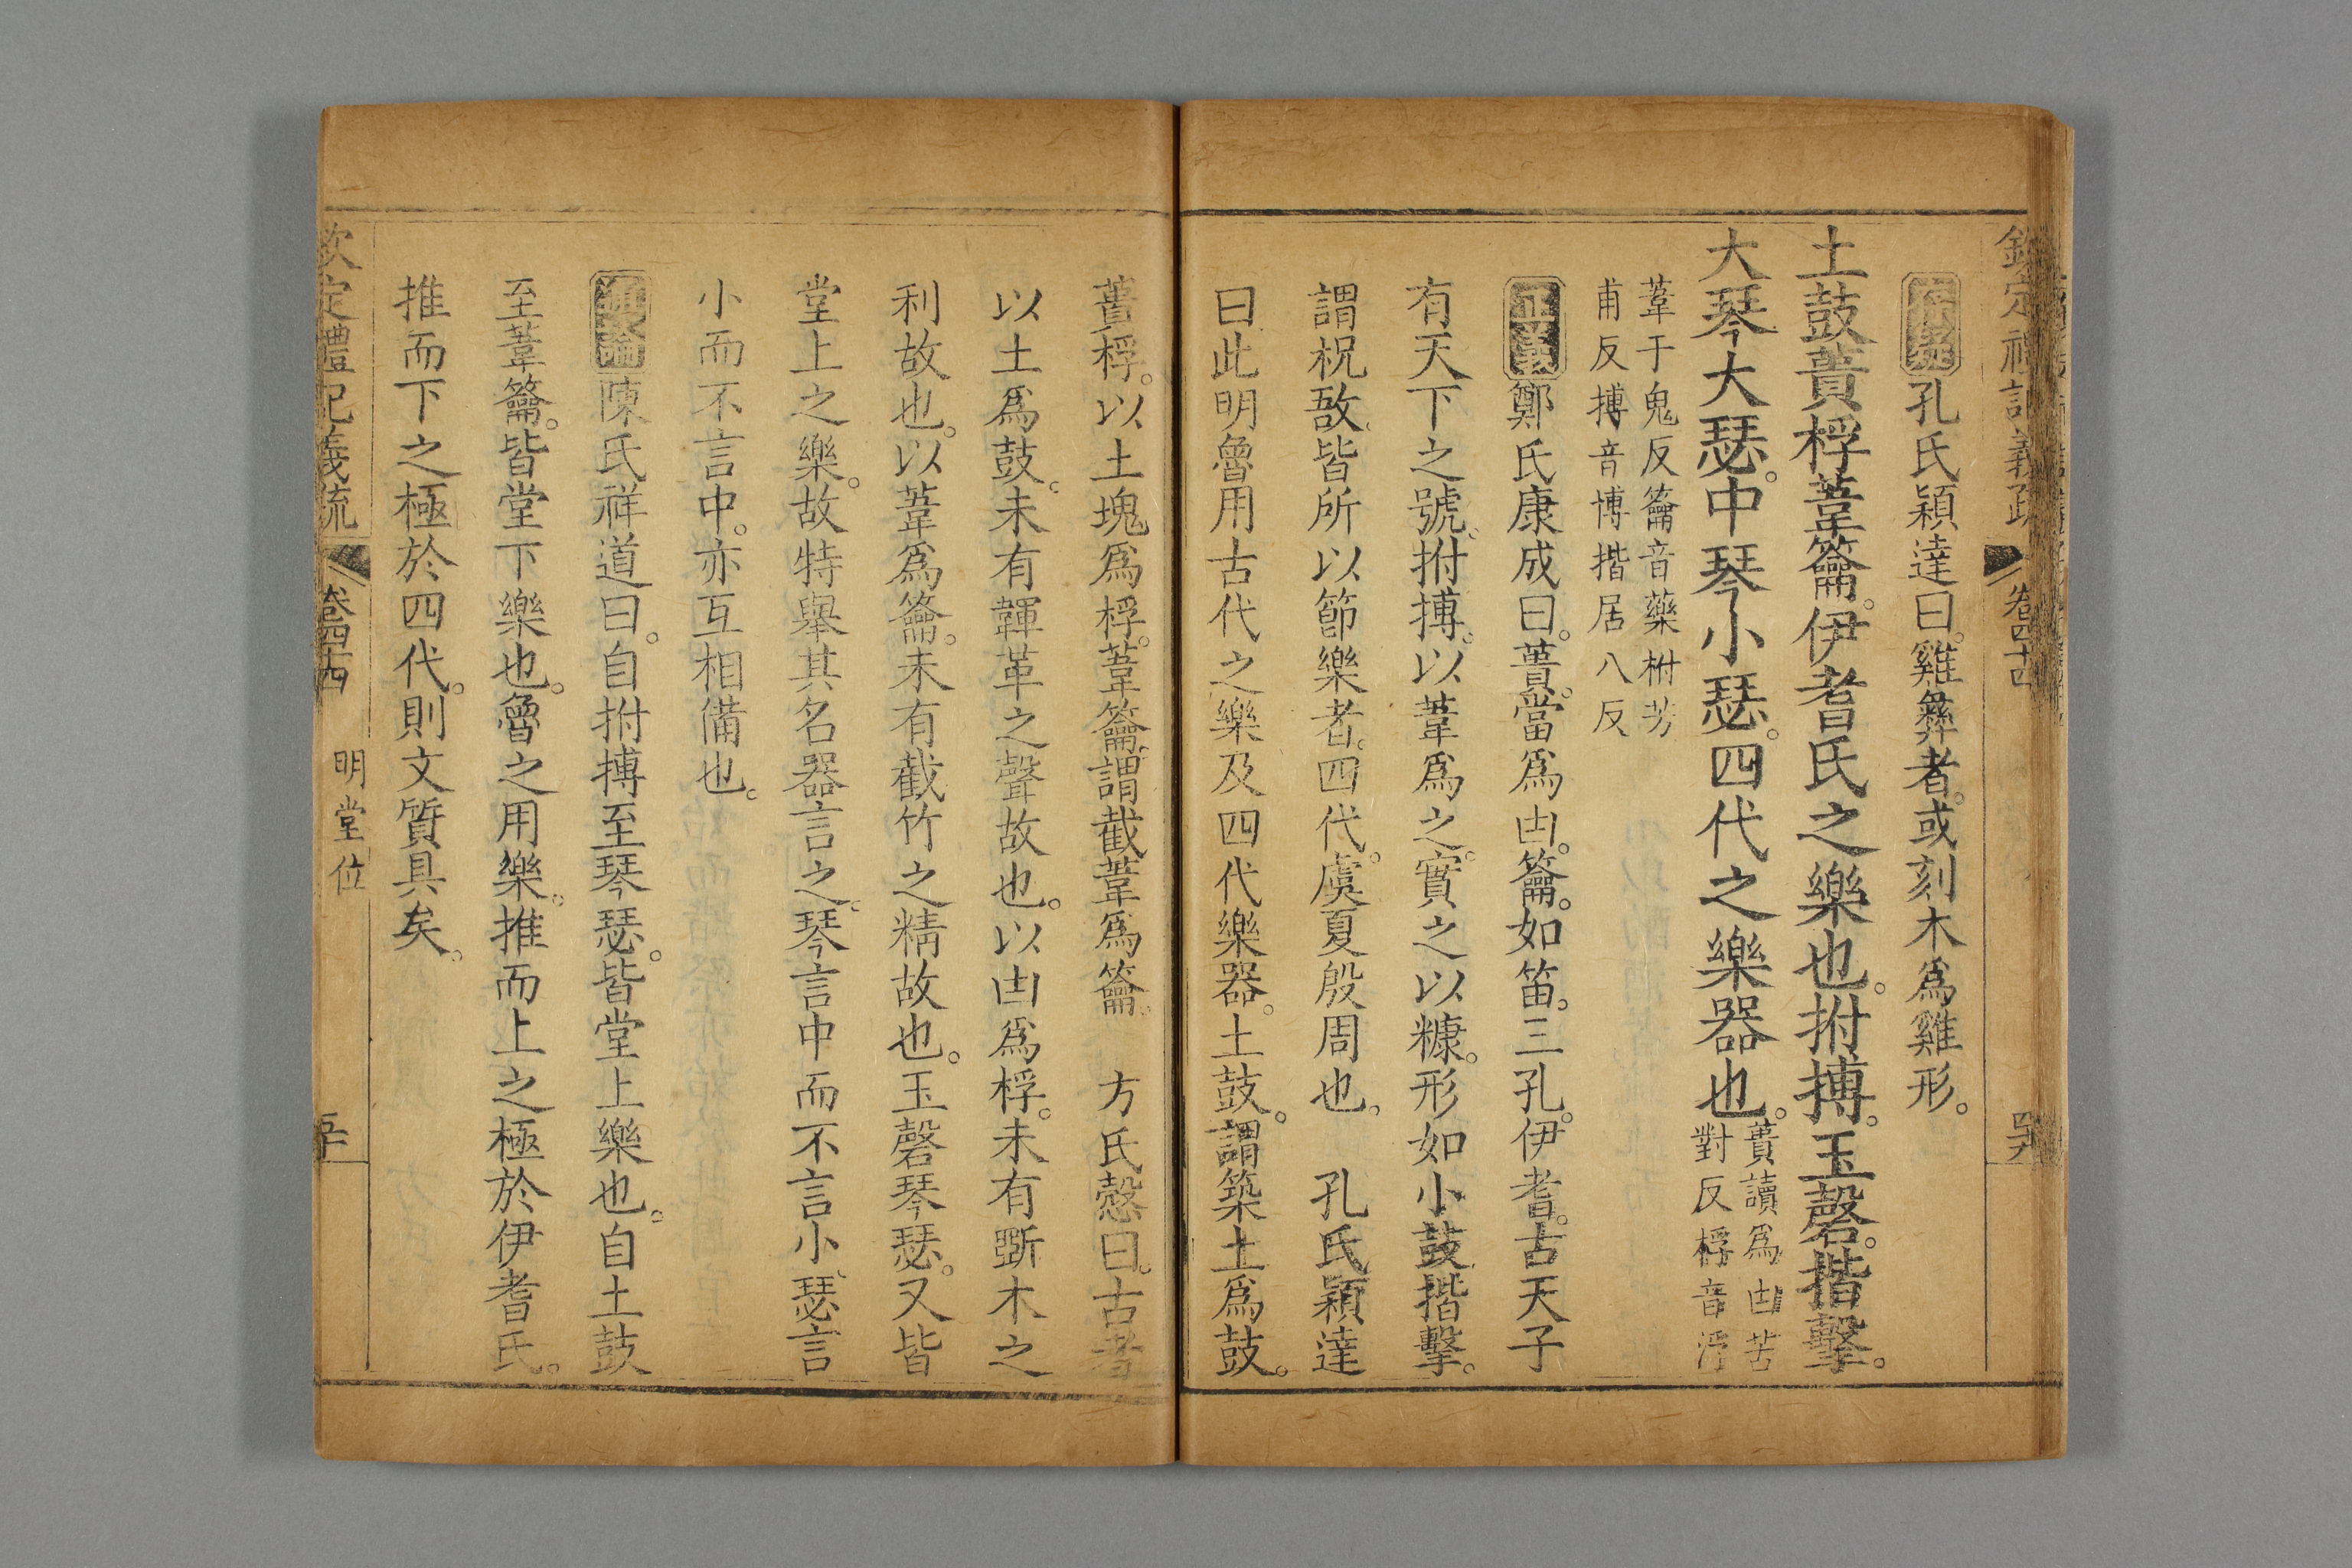 欽定禮記義疏 卷四十四
存疑孔氏穎達曰。雞彝者。或刻木爲雞形。
土鼓蕢桴葦籥。伊耆氏之樂也。拊搏。玉磬。揩擊。
大琴大瑟。中琴小瑟。四代之樂器也。蕢讀爲凷苦
對反桴音浮
葦于鬼反籥音藥柎芳
甫反搏音博揩居八反
正義鄭氏康成曰。蕢。當爲凷。籥。如笛。三孔。伊耆。古天子
有天下之號。拊搏。以葦爲之。實之以糠。形如小鼓。揩擊。
謂柷敔。皆所以節樂者。四代。虞夏殷周也。 孔氏穎達
曰此明魯用古代之樂及四代樂器。土鼓。謂築土爲鼓。
蕢桴。以土塊爲桴。葦籥。謂截葦爲籥。 方氏慤曰。古者
以土爲鼓。未有韗革之聲故也。以凷爲桴。未有斲木之
利故也。以葦爲籥。未有截竹之精故也。玉磬琴瑟。又皆
堂上之樂。故特舉其名器言之。琴言中而不言小。瑟言
小而不言中。亦互相備也。
通論陳氏祥道曰。自拊搏至琴瑟。皆堂上樂也。自土鼓
至葦籥。皆堂下樂也。魯之用樂。推而上之極於伊耆氏。
推而下之極於四代。則文質具矣。
欽定禮記義疏 卷四十四 明堂位